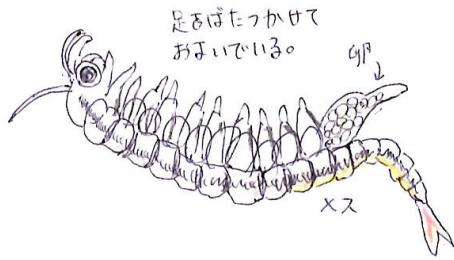 足をばたつかせて
およいでいる。
卵
メス